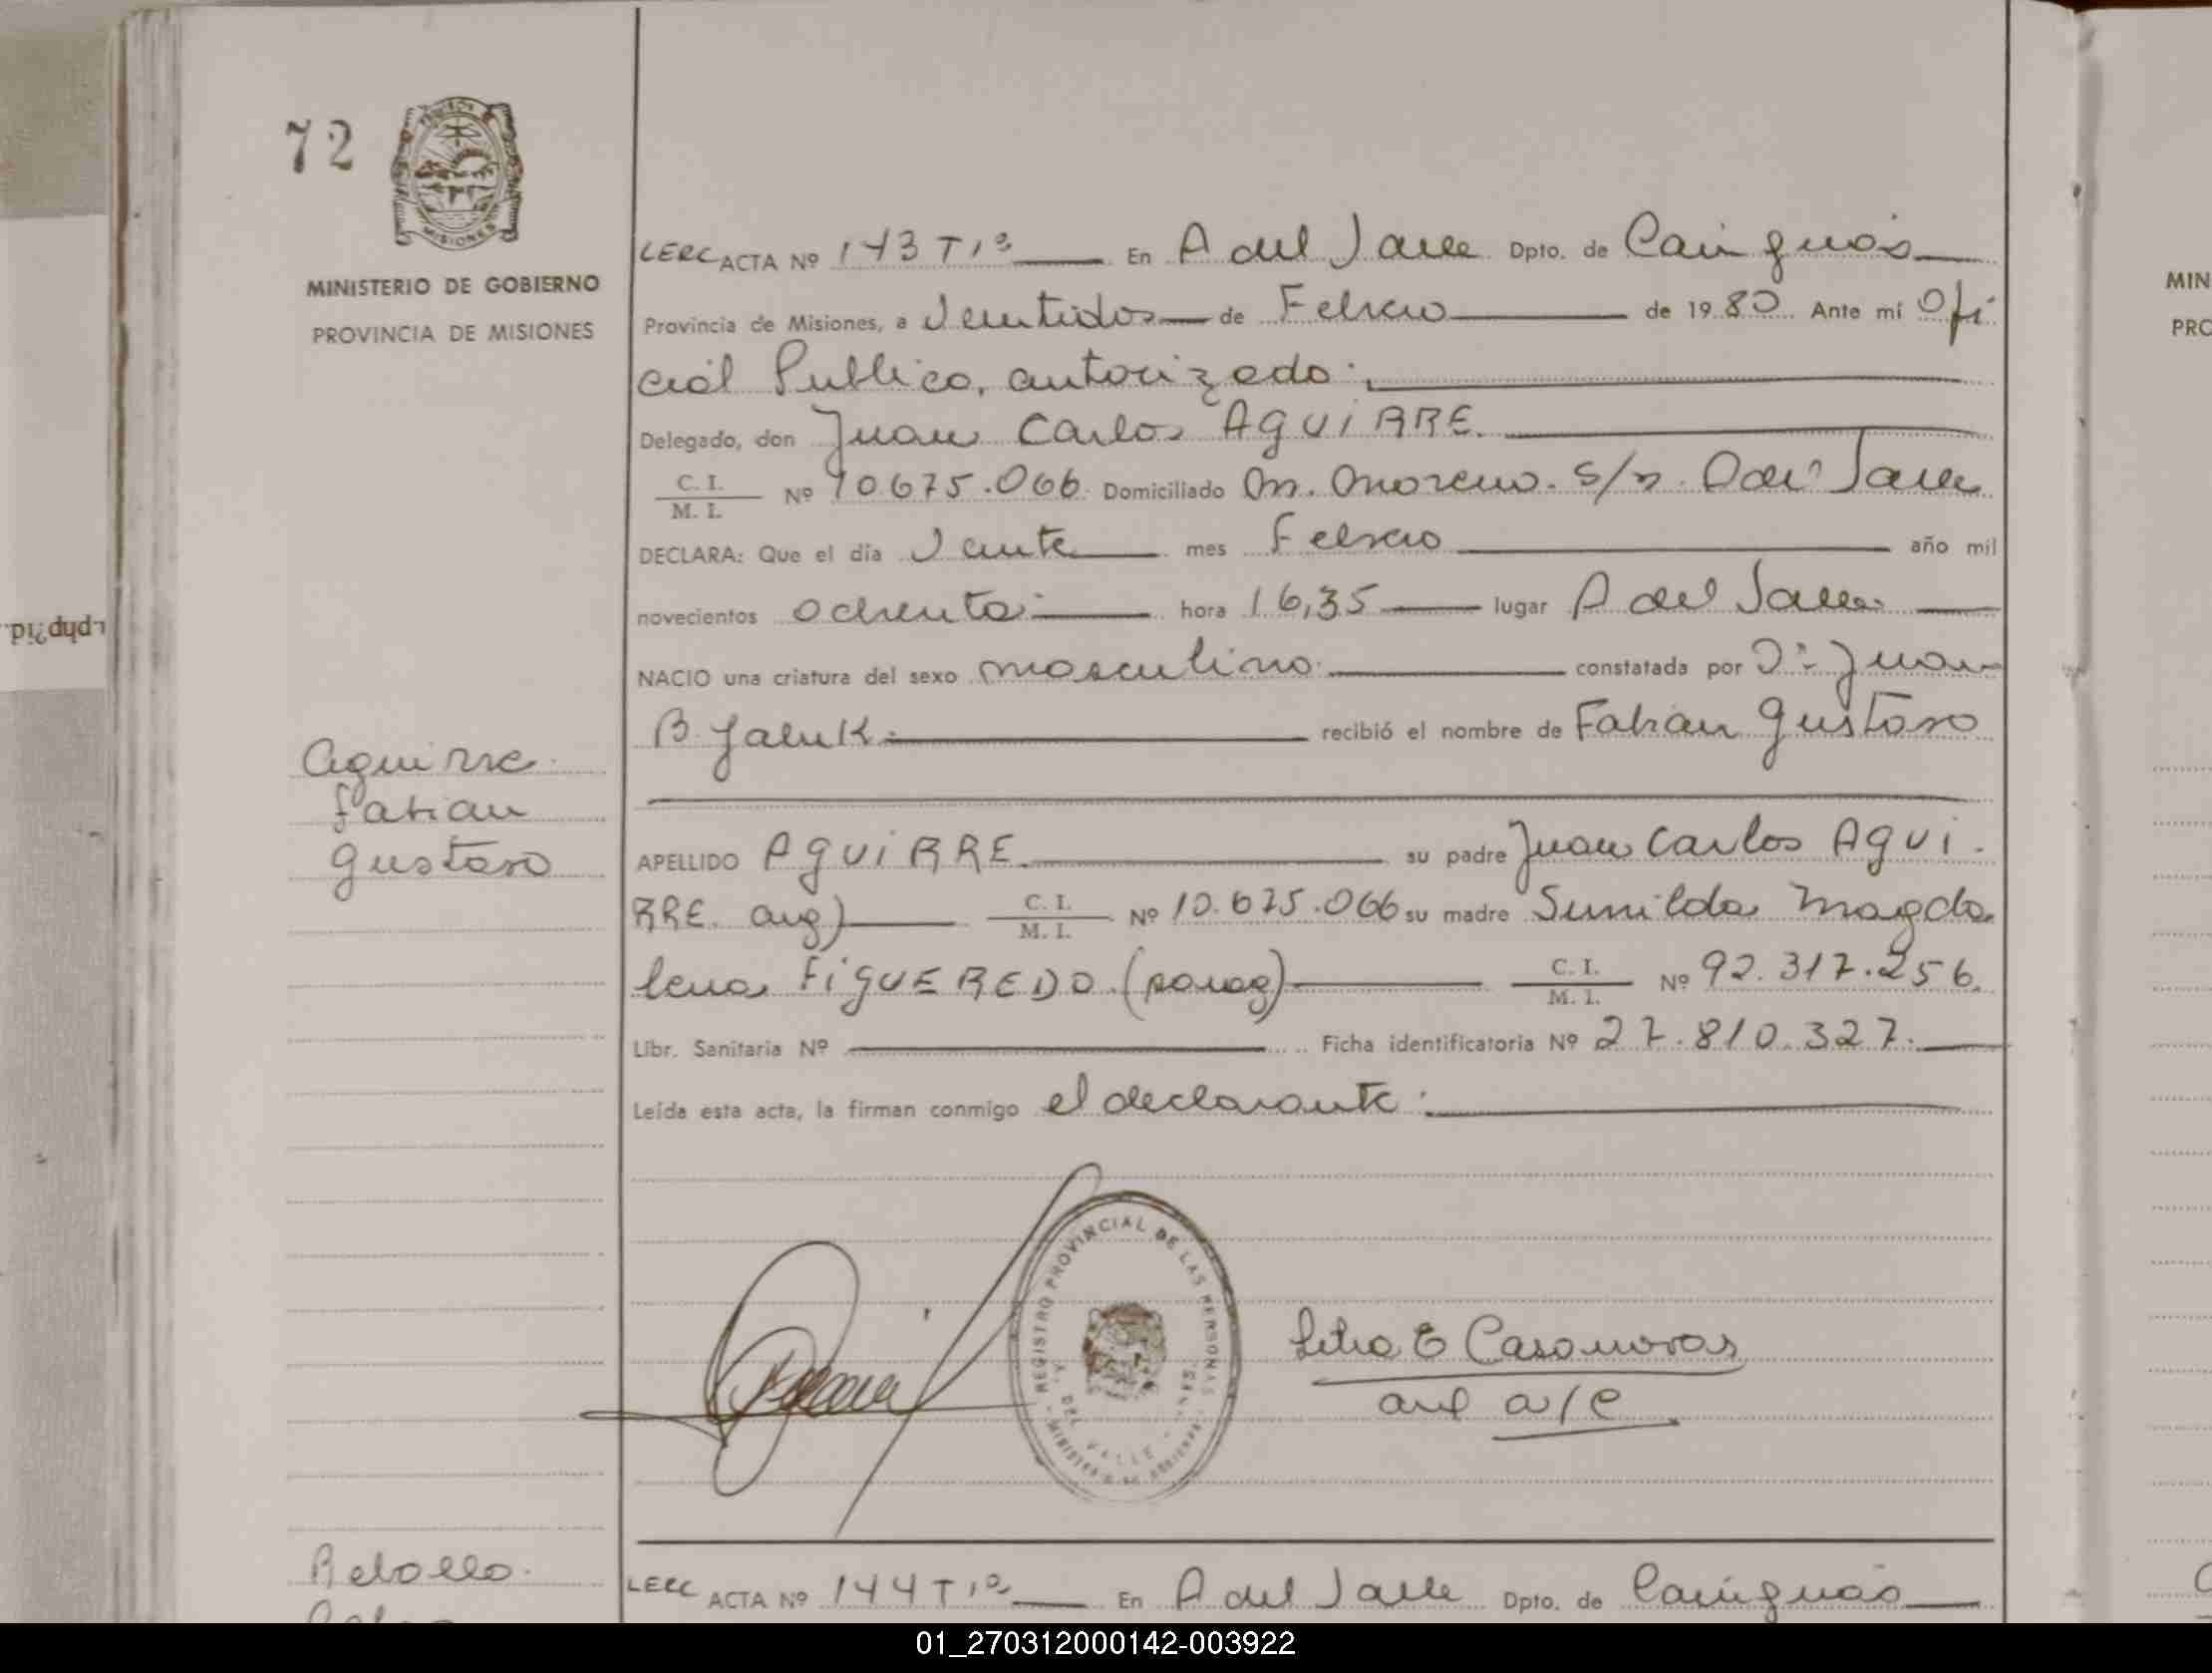 72
MISIONES
MINISTERIO DE GOBIERNO
PROVINCIA DE MISIONES
LERC ACTA Nº 143 Tº1º En A del Valle Dpto. de Cainguás
Provincia de Misiones, a Veintidos de Febrero de 1980. Ante mi Ofi
cial Publico, autorizado:
Delegado, don Juan Carlos AGUIRRE.
C. I. / M. I. Nº 10.675.066. Domiciliado M. Moreno. s/n. Valle
DECLARA: Que el día Veinte mes Febrero año mil
novecientos ochenta hora 16,35 lugar A del Valle
NACIO una criatura del sexo masculino constatada por Dr. Juan
B. Jaluk. recibió el nombre de Fabian Gustavo
Aguirre.
Fabian
Gustavo
APELLIDO AGUIRRE. su padre Juan Carlos AGUI-
RRE. arg) C. I. / M. I. Nº 10.675.066 su madre Sunilda Magda
lena FIGUEREDO (parag) C. I. / M. I. Nº 92.317.256.
Libr. Sanitaria Nº Ficha identificatoria Nº 27.810.327.
Leída esta acta, la firman conmigo el declarante.
REGISTRO PROVINCIAL DE LAS PERSONAS
A. DEL VALLE - MNES.
E Casanovas
a/c
Rebollo.
LERC ACTA Nº 144 Tº1º En A del Valle Dpto. de Cainguás
MIN
PRO
r.php?id
01_270312000142-003922